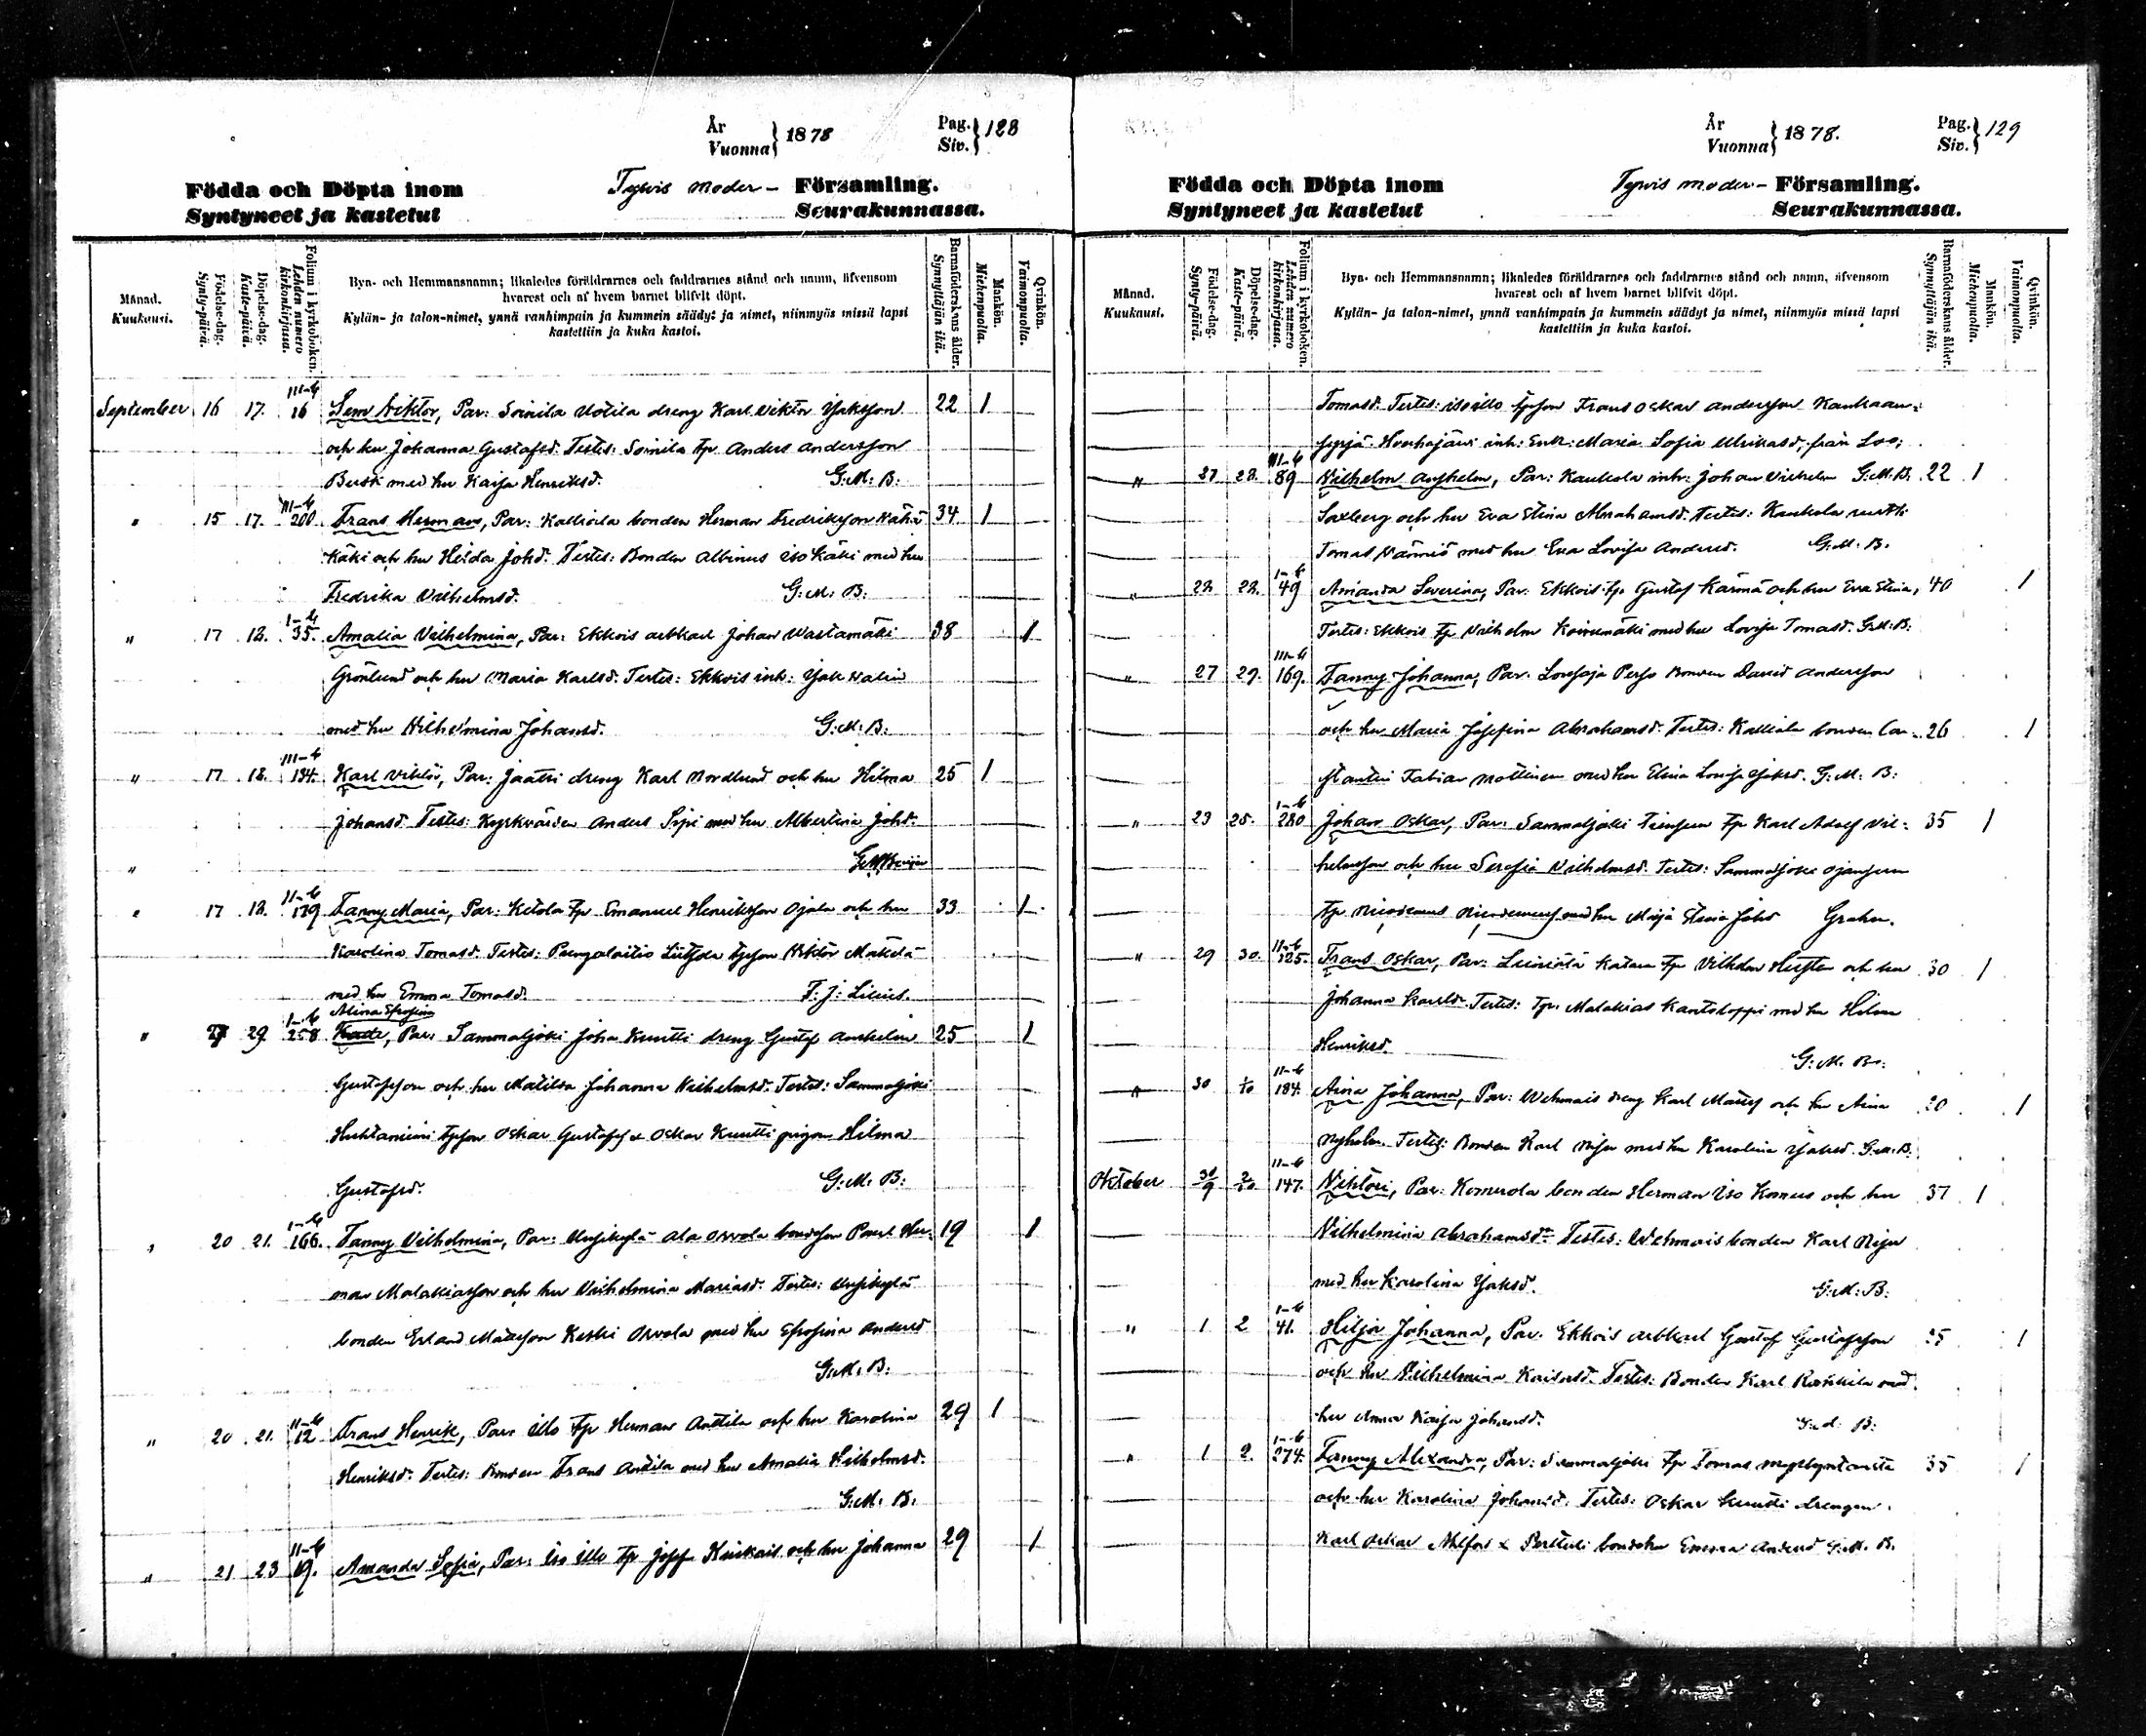 År
Vuonna } 1878
Pag.
Siv. } 128
Födda och Döpta inom Tyrvis moder- Församling.
Syntyneet ja kastetut Seurakunnassa.
Månad.
Kuukausi.
Födelse-dag.
Synty-päivä.
Döpelse-dag.
Kaste-päivä.
Folium i kyrkoboken.
Lehden numero kirkonkirjassa.
Byn- och Hemmansnamn; likaledes föräldrarnes och faddrarnes stånd och namn, äfvensom
hvarest och af hvem barnet blifvit döpt.
Kylän- ja talon-nimet, ynnä vanhimpain ja kummein säädyt ja nimet, niinmyös missä lapsi
kastettiin ja kuka kastoi.
Barnaföderskans ålder.
Synnyttäjän ikä.
Mankön.
Miehenpuolta.
Qvinkön.
Vaimonpuolta.
September 16 17. III-b 16 Sem Viktor, Par: Soinila Uotila dreng Karl Viktor Isaksson 22 1
och hu Johanna Gustafsd. Testes: Soinila tp Anders Andersson
Buski med hu Kaisa Henriksd. G.M.B.
" 15 17. III-b 200 Frans Herman, Par: Kalliala bonden Herman Fredriksson 34 1
Käki och hu Hilda Johd. Testes: Bonden Albinus Iso Käki med hu
Fredrika Vilhelmsd. G.M.B.
" 17 18. I-b 35. Amalia Vilhelmina, Par: Ekkois arbkarl Johan Wastamäki 38 1
Grönlund och hu Maria Karlsd. Testes: Ekkois inh: Isak Malin
med hu Vilhelmina Johansd. G.M.B.
" 17 18. III-b 184. Karl Viktor, Par: Jaatsi dreng Karl Nordlund och hu Hilma 25 1
Johansd. Testes: Kyrkvärden Anders Sipi med hu Albertina Johd.
"
" 17 18. II-b 179 Fanny Maria, Par: Ketola tp Emanuel Henriksson Ojala och hu 33 1
Karolina Tomasd. Testes: tpson Viktor Mäkelä
med hu Emma Tomasd. F. J. Lilius.
Alina Efrosina
" 29 I-b 258 Par: Sammaljoki Juha Kuutti dreng Gustaf Anshelm 25 1
Gustafsson och hu Matilda Johanna Vilhelmsd. Testes: Sammaljoki
Huhtaniemi tpson Oskar Gustafs & Oskar Kuutti pigan Hilma
Gustafsd. G.M.B.
" 20 21. I-b 166. Fanny Vilhelmina, Par: Uusikylä Ala Orvola bondeson Her- 19 1
man Malakiasson och hu Vilhelmina Mariasd. Testes: Uusikylä
bonden Erland Mattsson Keski Orvola med hu Efrosina Andersd
G.M.B.
" 20 21. II-b 12 Frans Henrik, Par: Illo tp Herman Anttila och hu Karolina 29 1
Henriksd. Testes: Bonden Frans Anttila med hu Amalia Vilhelmsd.
G.M.B.
" 21 23 II-b 19. Amanda Sofia, Par: Iso Illo tp Josef och hu Johanna 29 1
År
Vuonna } 1878.
Pag.
Siv. } 129
Födda och Döpta inom Tyrvis moder- Församling.
Syntyneet ja kastetut Seurakunnassa.
Månad.
Kuukausi.
Födelse-dag.
Synty-päivä.
Döpelse-dag.
Kaste-päivä.
Folium i kyrkoboken.
Lehden numero kirkonkirjassa.
Byn- och Hemmansnamn; likaledes föräldrarnes och faddrarnes stånd och namn, äfvensom
hvarest och af hvem barnet blifvit döpt.
Kylän- ja talon-nimet, ynnä vanhimpain ja kummein säädyt ja nimet, niinmyös missä lapsi
kastettiin ja kuka kastoi.
Barnaföderskans ålder.
Synnyttäjän ikä.
Mankön.
Miehenpuolta.
Qvinkön.
Vaimonpuolta.
Tomasd. Testes: Iso Illo tpson Frans Oskar Andersson
Houhajärvi inh: Enk: Maria Sofia Ulrikasd. från
" 27 28. III-b 89 Vilhelm Anshelm, Par: Kaukola inh: Johan Vilhelm G.M.B. 22 1
Saxberg och hu Eva Stina Abrahamsd. Testes: Kaukola
Tomas med hu Eva Lovisa Andersd. G.M.B.
" 22 22. I-b 49 Amanda Severina, Par: Ekkois tp Gustaf Kärmä och hu Eva Stina, 40 1
Testes: Ekkois tp Vilhelm Koivumäki med hu Lovisa Tomasd. G.M.B.
" 27 29. III-b 169. Fanny Johanna, Par: Lousaja bonden David Andersson
och hu Maria Josefina Abrahamsd. Testes: Kalliala bonden Con- 26 1
stantin Fabian med hu Elina Lovisa G.M.B.
" 23 25. I-b 280 Johan Oskar, Par: Sammaljoki tp Karl Adolf Vil- 35 1
helmsson och hu Serafia Vilhelmsd. Testes: Sammaljoki
tp Nicodemus med hu Maija Stina Johd Grahn.
" 29 30. II-b 125. Frans Oskar, Par: Liiniälä tp Vilhelm och hu 30 1
Johanna Karlsd. Testes: Tp. Malakias Kantoloppi med hu Hilma
Henriksd. G.M.B.
" 30 1/10 II-b 184. Aina Johanna, Par: Wehmais dreng Karl Matts och hu Aina 20 1
Nyholm. Testes: Bonden Karl med hu Karolina Isaksd. G.M.B.
Oktober 30/9 2/10 II-b 147. Viktori, Par: Komerola bonden Herman Iso Komero och hu 37 1
Vilhelmina Abrahamsdr. Testes: Wehmais bonden Karl
med hu Karolina Isaksd. G.M.B.
" 1 2 I-b 41. Hilja Johanna, Par: Ekkois arbkarl Gustaf Gustafsson 25 1
och hu Vilhelmina Testes: Bonden Karl med
hu Anna Kaisa Johansd. G.M.B.
" 1 2. I-b 274. Fanny Alexandra, Par: Sammaljoki tp Tomas 35 1
och hu Karolina Johansd. Testes: Oskar Kuutti drengen
Karl Oskar Ahlfors & Perttuli Emma Andersd G.M.B.